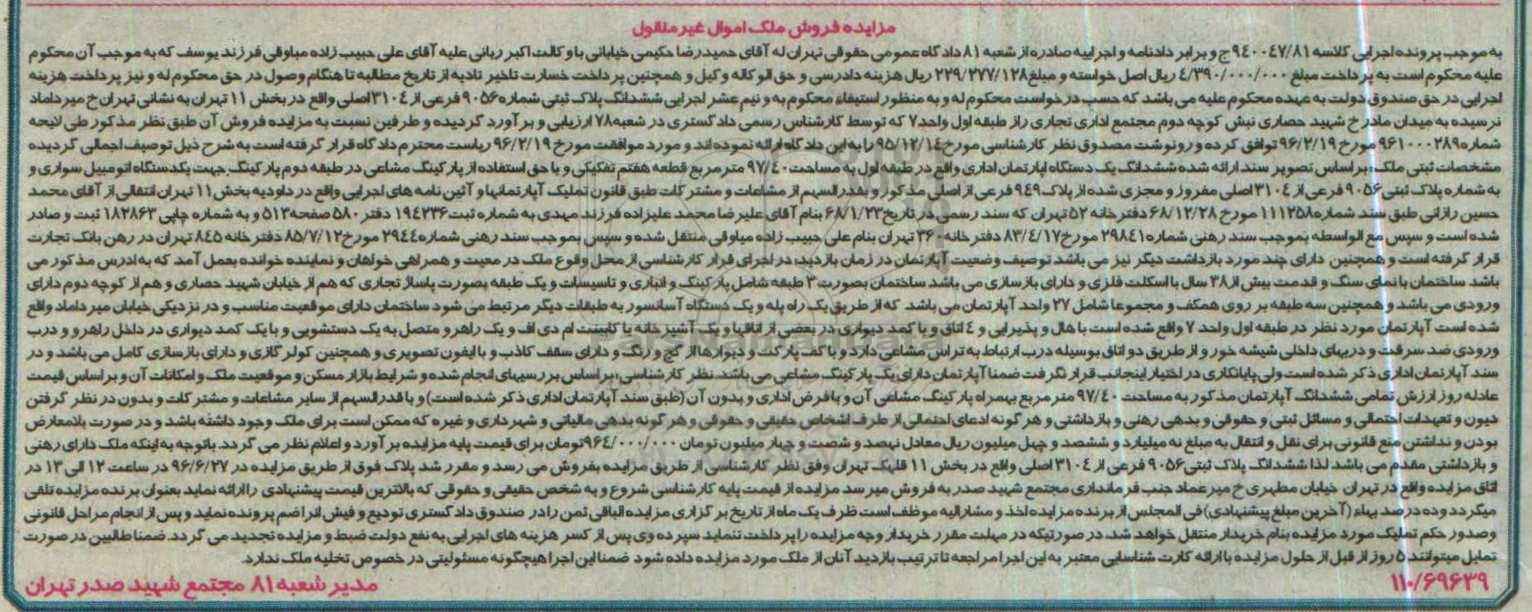 مزایده فروش ملک اموال غیرمنقول
به موجب پرونده اجرایی کلاسه ۹۴۰۰۴۷/۸۱ج و برابر دادنامه و اجراییه صادره از شعبه ۸۱ دادگاه عمومی حقوقی تهران له آقای حمیدرضا حکیمی خیابانی با وکالت اکبر ربانی علیه آقای علی حبیب زاده میاوقی فرزند یوسف که به موجب آن محکوم
علیه محکوم است به پرداخت مبلغ ۴/۳۹۰/۰۰۰/۰۰۰ ریال اصل خواسته و مبلغ ۲۲۹/۲۷۷/۱۲۸ ریال هزینه دادرسی و حق الوکاله وکیل و همچنین پرداخت خسارت تاخیر تادیه از تاریخ مطالبه تا هنگام وصول در حق محکوم له و نیز پرداخت هزینه
اجرایی در حق صندوق دولت به عهده محکوم علیه می باشد که حسب درخواست محکوم له و به منظور استیفاء محکوم به و نیم عشر اجرایی ششدانگ پلاک ثبتی شماره ۹۰۵۶ فرعی از ۳۱۰۴ اصلی واقع در بخش ۱۱ تهران به نشانی تهران خ میرداماد
نرسیده به میدان مادر خ شهید حصاری نبش کوچه دوم مجتمع اداری تجاری راز طبقه اول واحد ۷ که توسط کارشناس رسمی دادگستری در شعبه ۷۸ ارزیابی و برآورد گردیده و طرفین نسبت به مزایده فروش آن طبق نظر مذکور طی لایحه
شماره ۹۶۱۰۰۰۲۸۹ مورخ ۹۶/۲/۱۹ توافق کرده و رونوشت مصدوق نظر کارشناسی مورخ ۹۵/۱۲/۱۴ را به این دادگاه ارائه نموده اند و مورد موافقت مورخ ۹۶/۲/۱۹ ریاست محترم دادگاه قرار گرفته است به شرح ذیل توصیف اجمالی گردیده
مشخصات ثبتی ملک: براساس تصویر سند ارائه شده ششدانگ یک دستگاه آپارتمان اداری واقع در طبقه اول به مساحت ۹۷/۴۰ مترمربع قطعه هفتم تفکیکی و با حق استفاده از پارکینگ مشاعی در طبقه دوم پارکینگ، جهت یکدستگاه اتومبیل سواری و
به شماره پلاک ثبتی ۹۰۵۶ فرعی از ۳۱۰۴ اصلی مفروز و مجزی شده از پلاک ۹۴۹ فرعی از اصلی مذکور و بقدرالسهم از مشاعات و مشترکات طبق قانون تملیک آپارتمانها و آئین نامه های اجرایی واقع در داودیه بخش ۱۱ تهران انتقالی از آقای محمد
حسین رازانی طبق سند شماره ۱۱۱۲۵۸ مورخ ۶۸/۱۲/۲۸ دفترخانه ۵۲ تهران که سند رسمی در تاریخ ۶۸/۱/۲۳ بنام آقای علیرضا محمد علیزاده فرزند مهدی به شماره ثبت ۱۹۴۲۳۶ دفتر ۵۸۰ صفحه ۵۱۳ و به شماره چاپی ۱۸۲۸۶۳ ثبت و صادر
شده است و سپس مع الواسطه بموجب سند رهنی شماره ۲۹۸۴۱ مورخ ۸۳/۴/۱۷ دفترخانه ۳۶۰ تهران بنام علی حبیب زاده میاوقی منتقل شده و سپس بموجب سند رهنی شماره ۲۹۴۴ مورخ ۸۵/۷/۱۲ دفترخانه ۸۴۵ تهران در رهن بانک تجارت
قرار گرفته است و همچنین دارای چند مورد بازداشت دیگر نیز می باشد توصیف وضعیت آپارتمان در زمان بازدید: در اجرای قرار کارشناسی از محل وقوع ملک در معیت و همراهی خواهان و نماینده خوانده بعمل آمد که به ادرس مذکور می
باشد ساختمان با نمای سنگ و قدمت بیش از ۲۸ سال با اسکلت فلزی و دارای بازسازی می باشد ساختمان بصورت ۳ طبقه شامل پارکینگ و انباری و تاسیسات و یک طبقه بصورت پاساژ تجاری که هم از خیابان شهید حصاری و هم از کوچه دوم دارای
ورودی می باشد و همچنین سه طبقه بر روی همکف و مجموعا شامل ۲۷ واحد آپارتمان می باشد که از طریق یک راه پله و یک دستگاه آسانسور به طبقات دیگر مرتبط می شود ساختمان دارای موقعیت مناسب و در نزدیکی خیابان میرداماد واقع
شده است آپارتمان مورد نظر در طبقه اول واحد ۷ واقع شده است با هال و پذیرایی و ۴ اتاق و با کمد دیواری در بعضی از اتاقها و یک آشپزخانه با کابینت ام دی اف و یک راهرو متصل به یک دستشویی و با یک کمد دیواری در داخل راهرو و درب
ورودی ضد سرقت و دربهای داخلی شیشه خور و از طریق دو اتاق بوسیله درب ارتباط به تراس مشاعی دارد و با کف پارکت و دیوارها از گچ و رنگ و دارای سقف کاذب و با ایفون تصویری و همچنین کولر گازی و دارای بازسازی کامل می باشد و در
سند آپارتمان اداری ذکر شده است ولی پایانکاری در اختیار اینجانب قرار نگرفت ضمنا آپارتمان دارای یک پارکینگ مشاعی می باشد. نظر کارشناسی: براساس بررسیهای انجام شده و شرایط بازار مسکن و موقعیت ملک و امکانات آن و براساس قیمت
عادله روز ارزش تمامی ششدانگ آپارتمان مذکور به مساحت ۹۷/۴۰ متر مربع بهمراه پارکینگ مشاعی آن و با فرض اداری و بدون آن (طبق سند آپارتمان اداری ذکر شده است) و با قدرالسهم از سایر مشاعات و مشترکات و بدون در نظر گرفتن
دیون و تعهدات احتمالی و مسائل ثبتی و حقوقی و بدهی رهنی و بازداشتی و هر گونه ادعای احتمالی از طرف اشخاص حقیقی و حقوقی و هر گونه بدهی مالیاتی و شهرداری و غیره که ممکن است برای ملک وجود داشته باشد و در صورت بلامعارض
بودن و نداشتن منع قانونی برای نقل و انتقال به مبلغ نه میلیارد و ششصد و چهل میلیون ریال معادل نهصد و شصت و چهار میلیون تومان ۹۶۴/۰۰۰/۰۰۰تومان برای قیمت پایه مزایده برآورد و اعلام نظر می گردد. باتوجه به اینکه ملک دارای رهنی
و بازداشتی مقدم می باشد لذا ششدانگ پلاک ثبتی ۹۰۵۶ فرعی از ۳۱۰۴ اصلی واقع در بخش ۱۱ قلهک تهران وفق نظر کارشناسی از طریق مزایده بفروش می رسد و مقرر شد پلاک فوق از طریق مزایده در ۹۶/۶/۲۷ در ساعت ۱۲ الی ۱۳ در
اتاق مزایده واقع در تهران خیابان مطهری خ میرعماد جنب فرمانداری مجتمع شهید صدر به فروش میرسد مزایده از قیمت پایه کارشناسی شروع و به شخص حقیقی و حقوقی که بالاترین قیمت پیشنهادی را ارائه نماید بعنوان برنده مزایده تلقی
میگردد و ده درصد بهاء (آخرین مبلغ پیشنهادی) فی المجلس از برنده مزایده اخذ و مشارالیه موظف است ظرف یک ماه از تاریخ برگزاری مزایده الباقی ثمن را در صندوق دادگستری تودیع و فیش انرا ضم پرونده نماید و پس از انجام مراحل قانونی
وصدور حکم تملیک مورد مزایده بنام خریدار منتقل خواهد شد. در صورتیکه در مهلت مقرر خریدار وجه مزایده را پرداخت ننماید سپرده وی پس از کسر هزینه های اجرایی به نفع دولت ضبط و مزایده تجدید می گردد. ضمنا طالبین در صورت
تمایل میتوانند ۵ روز از قبل از حلول مزایده با ارائه کارت شناسایی معتبر به این اجرا مراجعه تا ترتیب بازدید آنان از ملک مورد مزایده داده شود ضمنا این اجرا هیچگونه مسئولیتی در خصوص تخلیه ملک ندارد.
۱۱۰/۶۹۶۳۹
مدیر شعبه ۸۱ مجتمع شهید صدر تهران